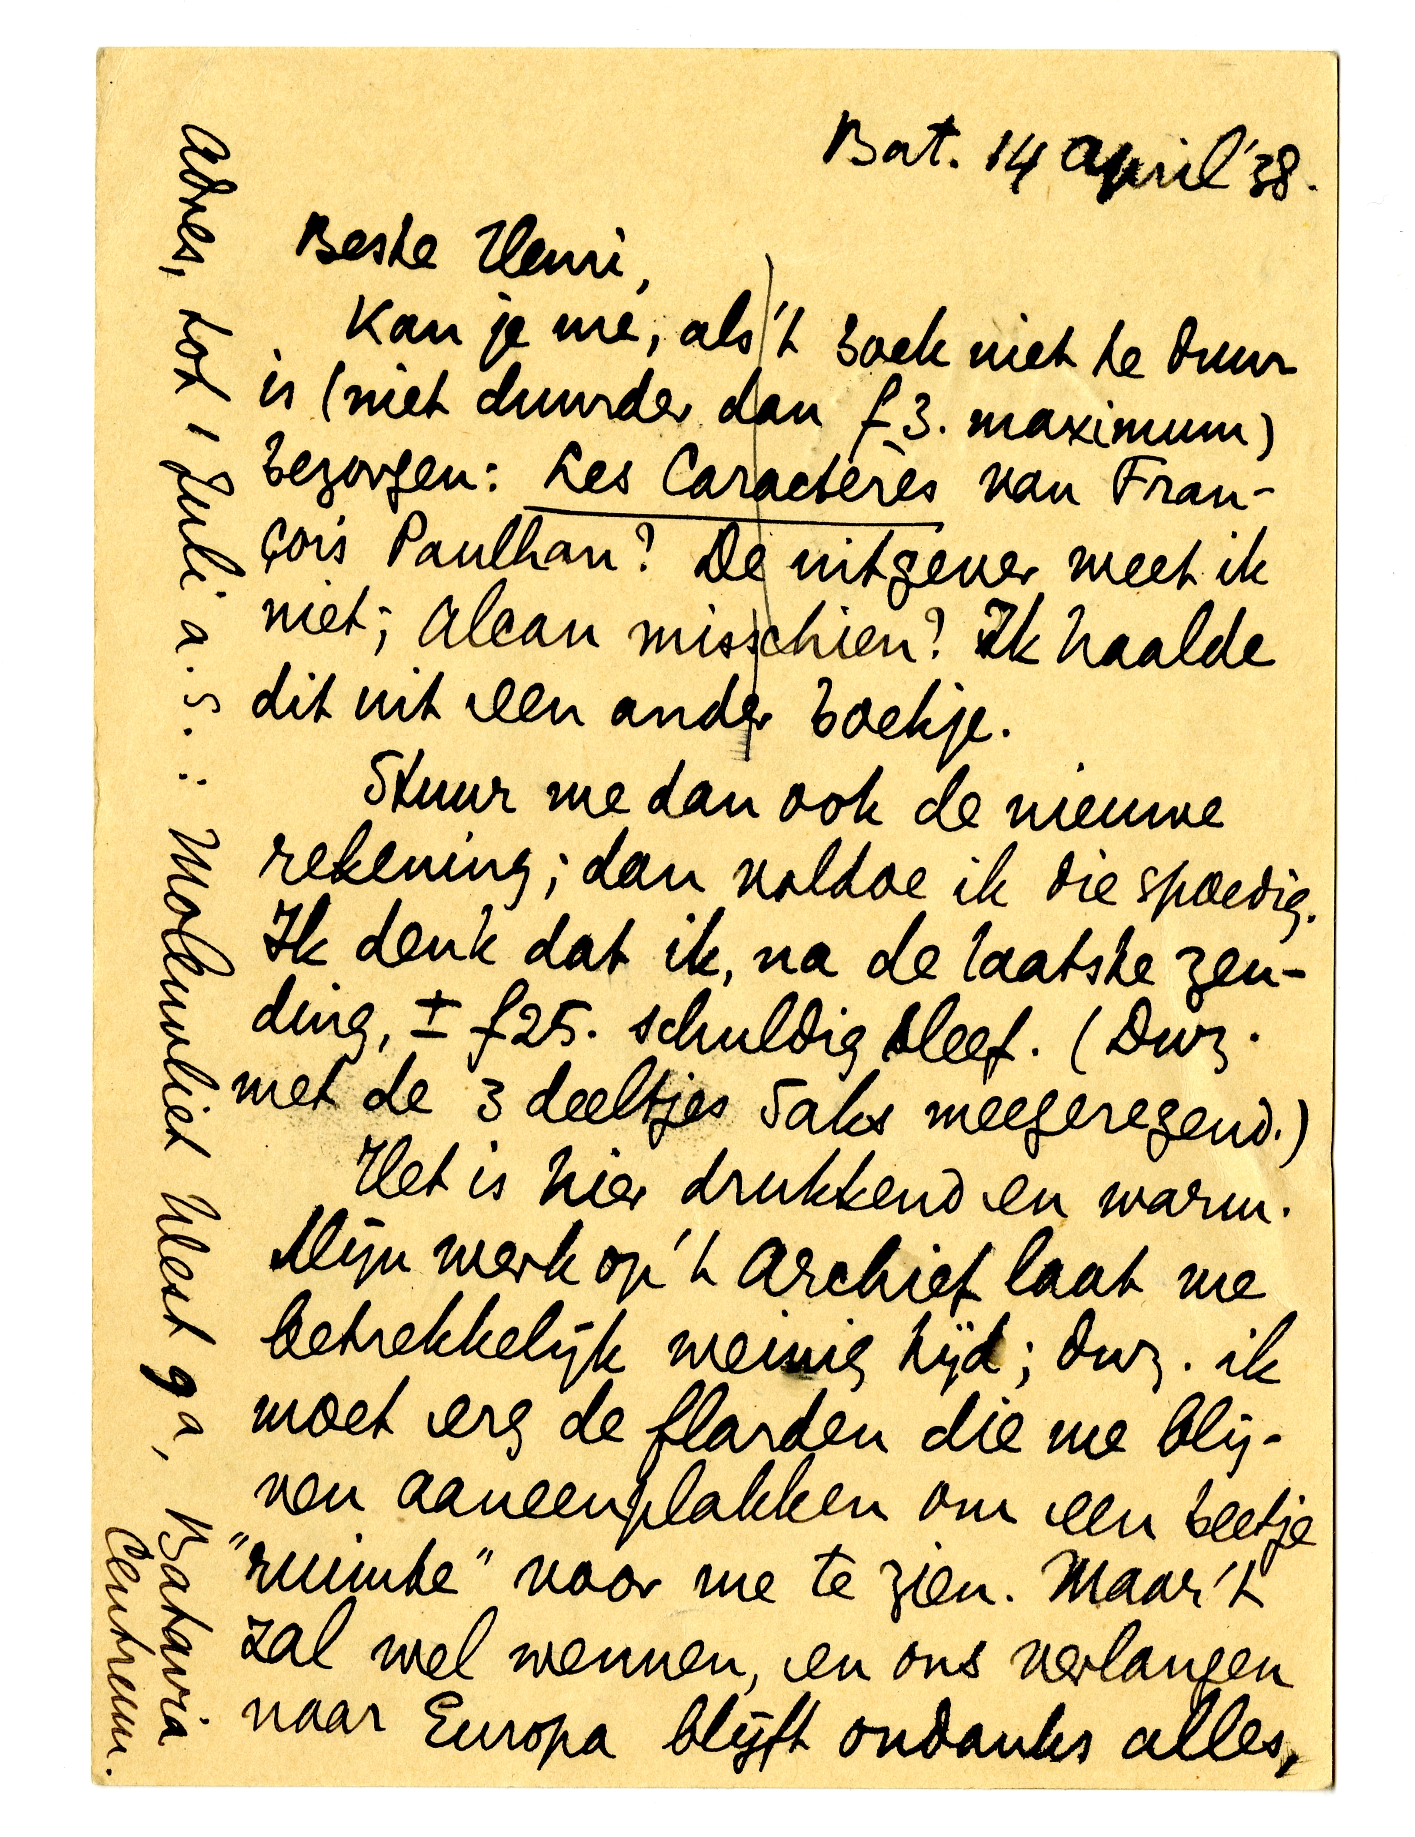 Bat. 14 April '38.
Beste Henri,
Kan je me, als 't boek niet te duur
is (niet duurder dan f 3. maximum)
bezorgen: Les Caractères van Fran-
çois Paulhan? De uitgever weet ik
niet; Alcan misschien? Ik haalde
dit uit een ander boekje.
Stuur me dan ook de nieuwe
rekening; dan voldoe ik die spoedig.
Ik denk dat ik, na de laatste zen-
ding, ± f 25. schuldig bleef. (Dwz.
met de 3 deeltjes Saks meegeregend.)
Het is hier drukkend en warm.
Mijn werk op 't Archief laat me
betrekkelijk weinig tijd; dwz. ik
moet erg de flarden die me blij-
ven aaneenplakken om een beetje
"ruimte" voor me te zien. Maar 't
zal wel wennen, en ons verlangen
naar Europa blijft ondanks alles,
Adres, tot 1 Juli a.s.: Molenvliet West 9a, Batavia
Centrum.